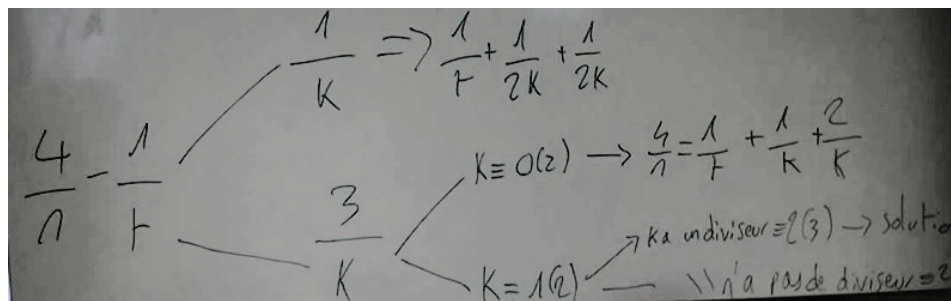 4/n - 1/t
1/K => 1/t + 1/2K + 1/2K
3/K
K ≡ 0(2) → 4/n = 1/t + 1/K + 2/K
K ≡ 1(2)
→ K a un diviseur ≡ 2(3) → solutio
— \\ n'a pas de diviseur ≡ 2